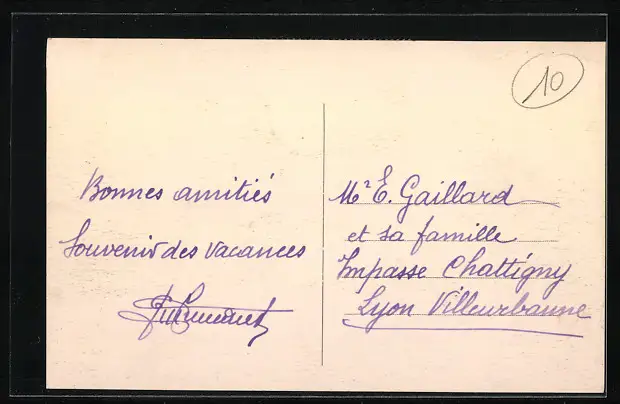 Bonnes amitiés
Souvenir des Vacances
10
Mr E. Gaillard
et sa famille
Impasse Chattigny
Lyon Villeurbanne